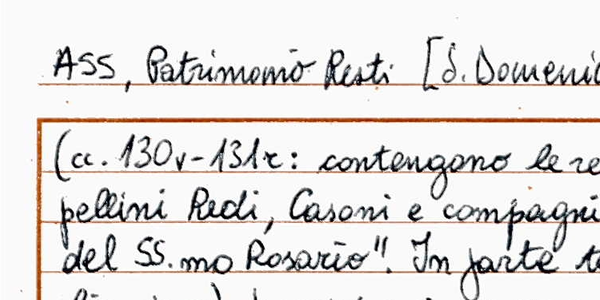 ASS, Patrimonio Resti [S. Domenic
(cc. 130v-131r: contengono le re
pellini Redi, Casoni e compagni
del SS.mo Rosario". In parte t